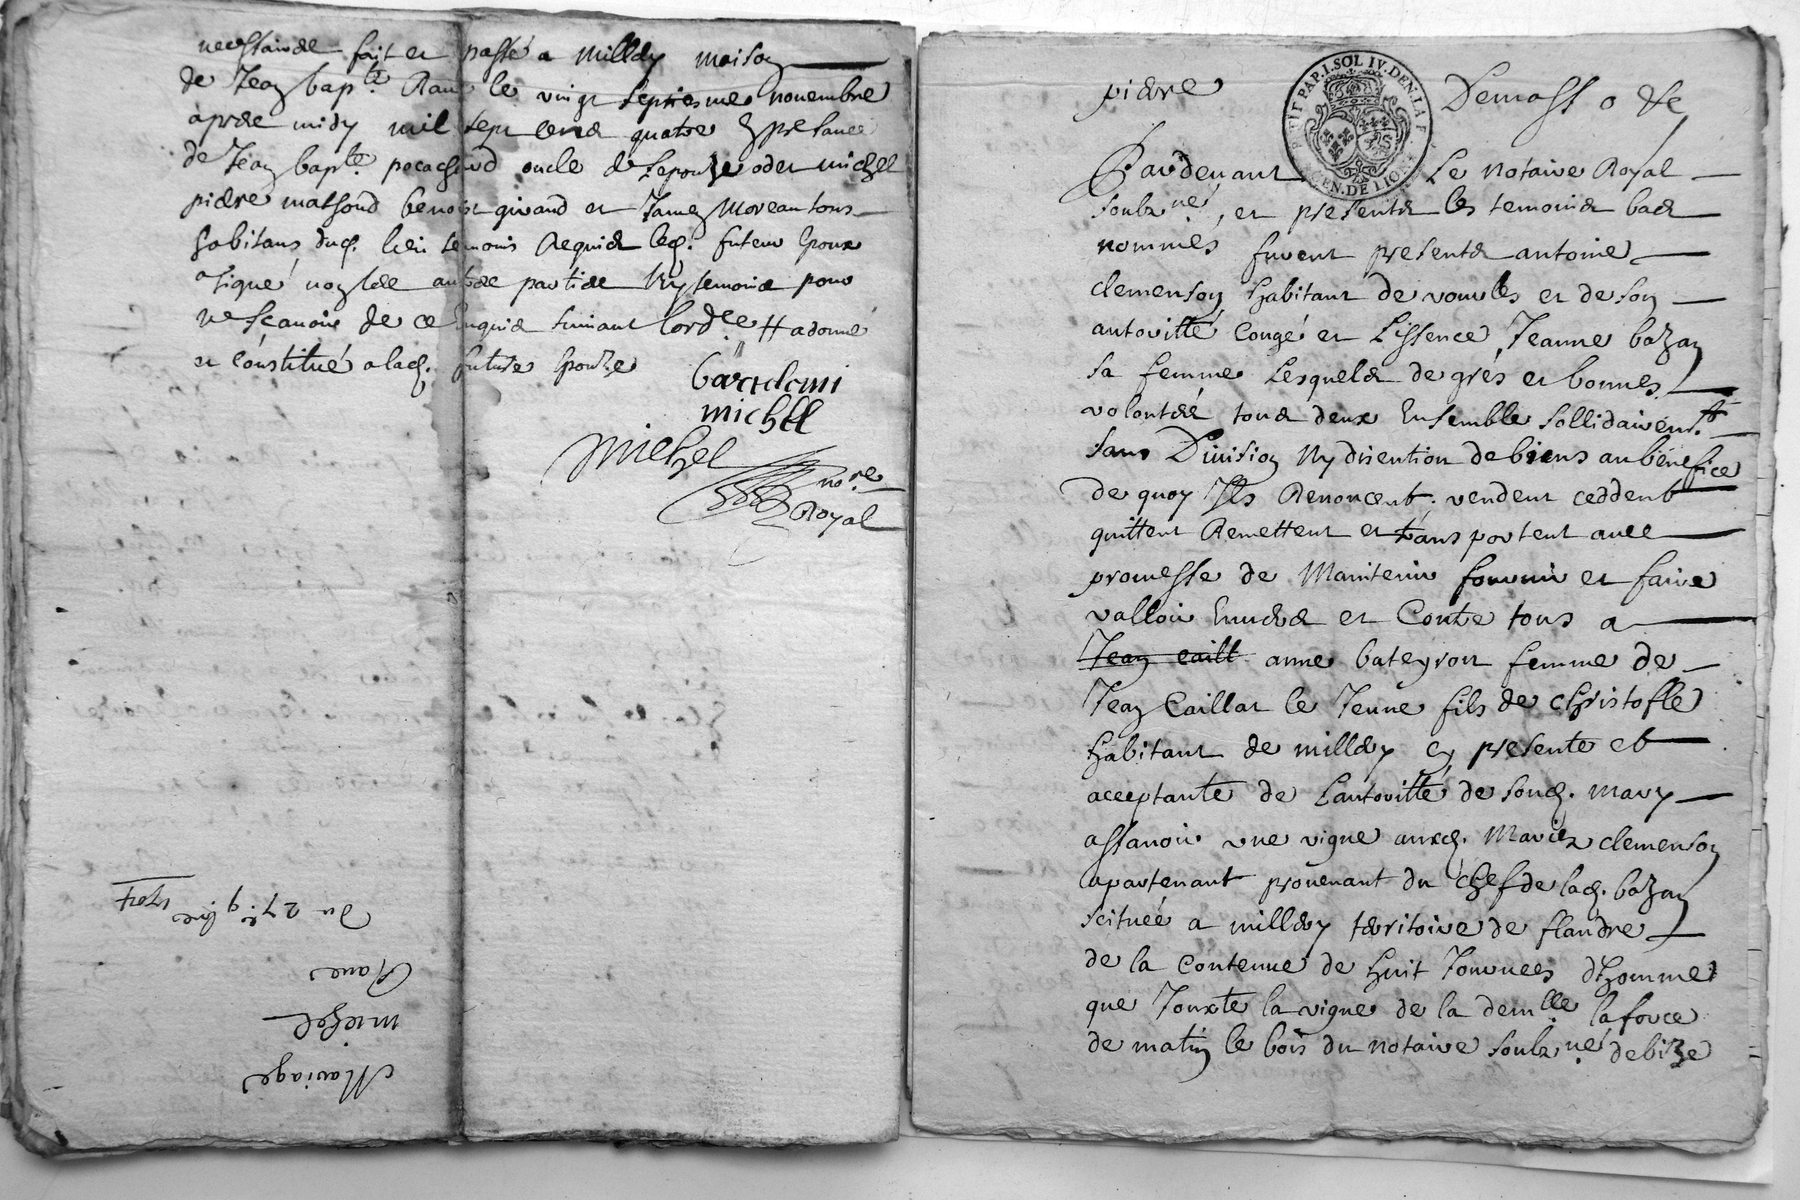 necessairee fait et passé a milldy maison
de Jean bapte. Rane le vingt septiesme novembre
apree midy mil sept cens quatre Epresance
de Jean bapte. pocachard oncle de Lepouze odet michel
piere mathoud benoist giraud et James Moreau tous
habitans dud. lieu temoins Requis led. futeur Epoux
a signé non lee autree partiee Ny temoins pour
ne scauoir de ce Enquis suiuant lordee # a donné
et constitué a lad. future Epouze
baradomi
michll
Michel
nore
Royal
Mariage
michel
Rane
du 27e. 9bre
1704
piere
PETIT PAP. I. SOL IV. DEN. LA F
GEN. DE LION
Pardeuant Le Notaire Royal
soubzné, et presents les temoins bas
nommés furent presents antoine
clemenson habitant de vourles et de son
autoritté Congé et Lissence, Jeanne bazan
sa femme Lesquels de grés et bonnes
volontéé tous deux Ensemble sollidairent.
sans Diuision Ny discution de biens au benefice
de quoy Ils Renoncent; vendent ceddent
quittent Remettent et transportent auec
promesse de Maintenir fournir et faire
valloir Enuers et Contre tous a
Jean caill anne bateyron femme de
Jean Caillat le Jeune fils de christofle
habitant de milldy cy presente et
acceptante de Lautoritté de sond. mary
assauoir une vigne auxd. Mariez clemenson
apartenant prouenant du chef de lad. bazan
scituée a milldy territoire de flandre
de la contenue de huit Journees dhomme
que Jouxte la vigne de la demlle. laforce
de matin le bois du notaire soubzné. de bize